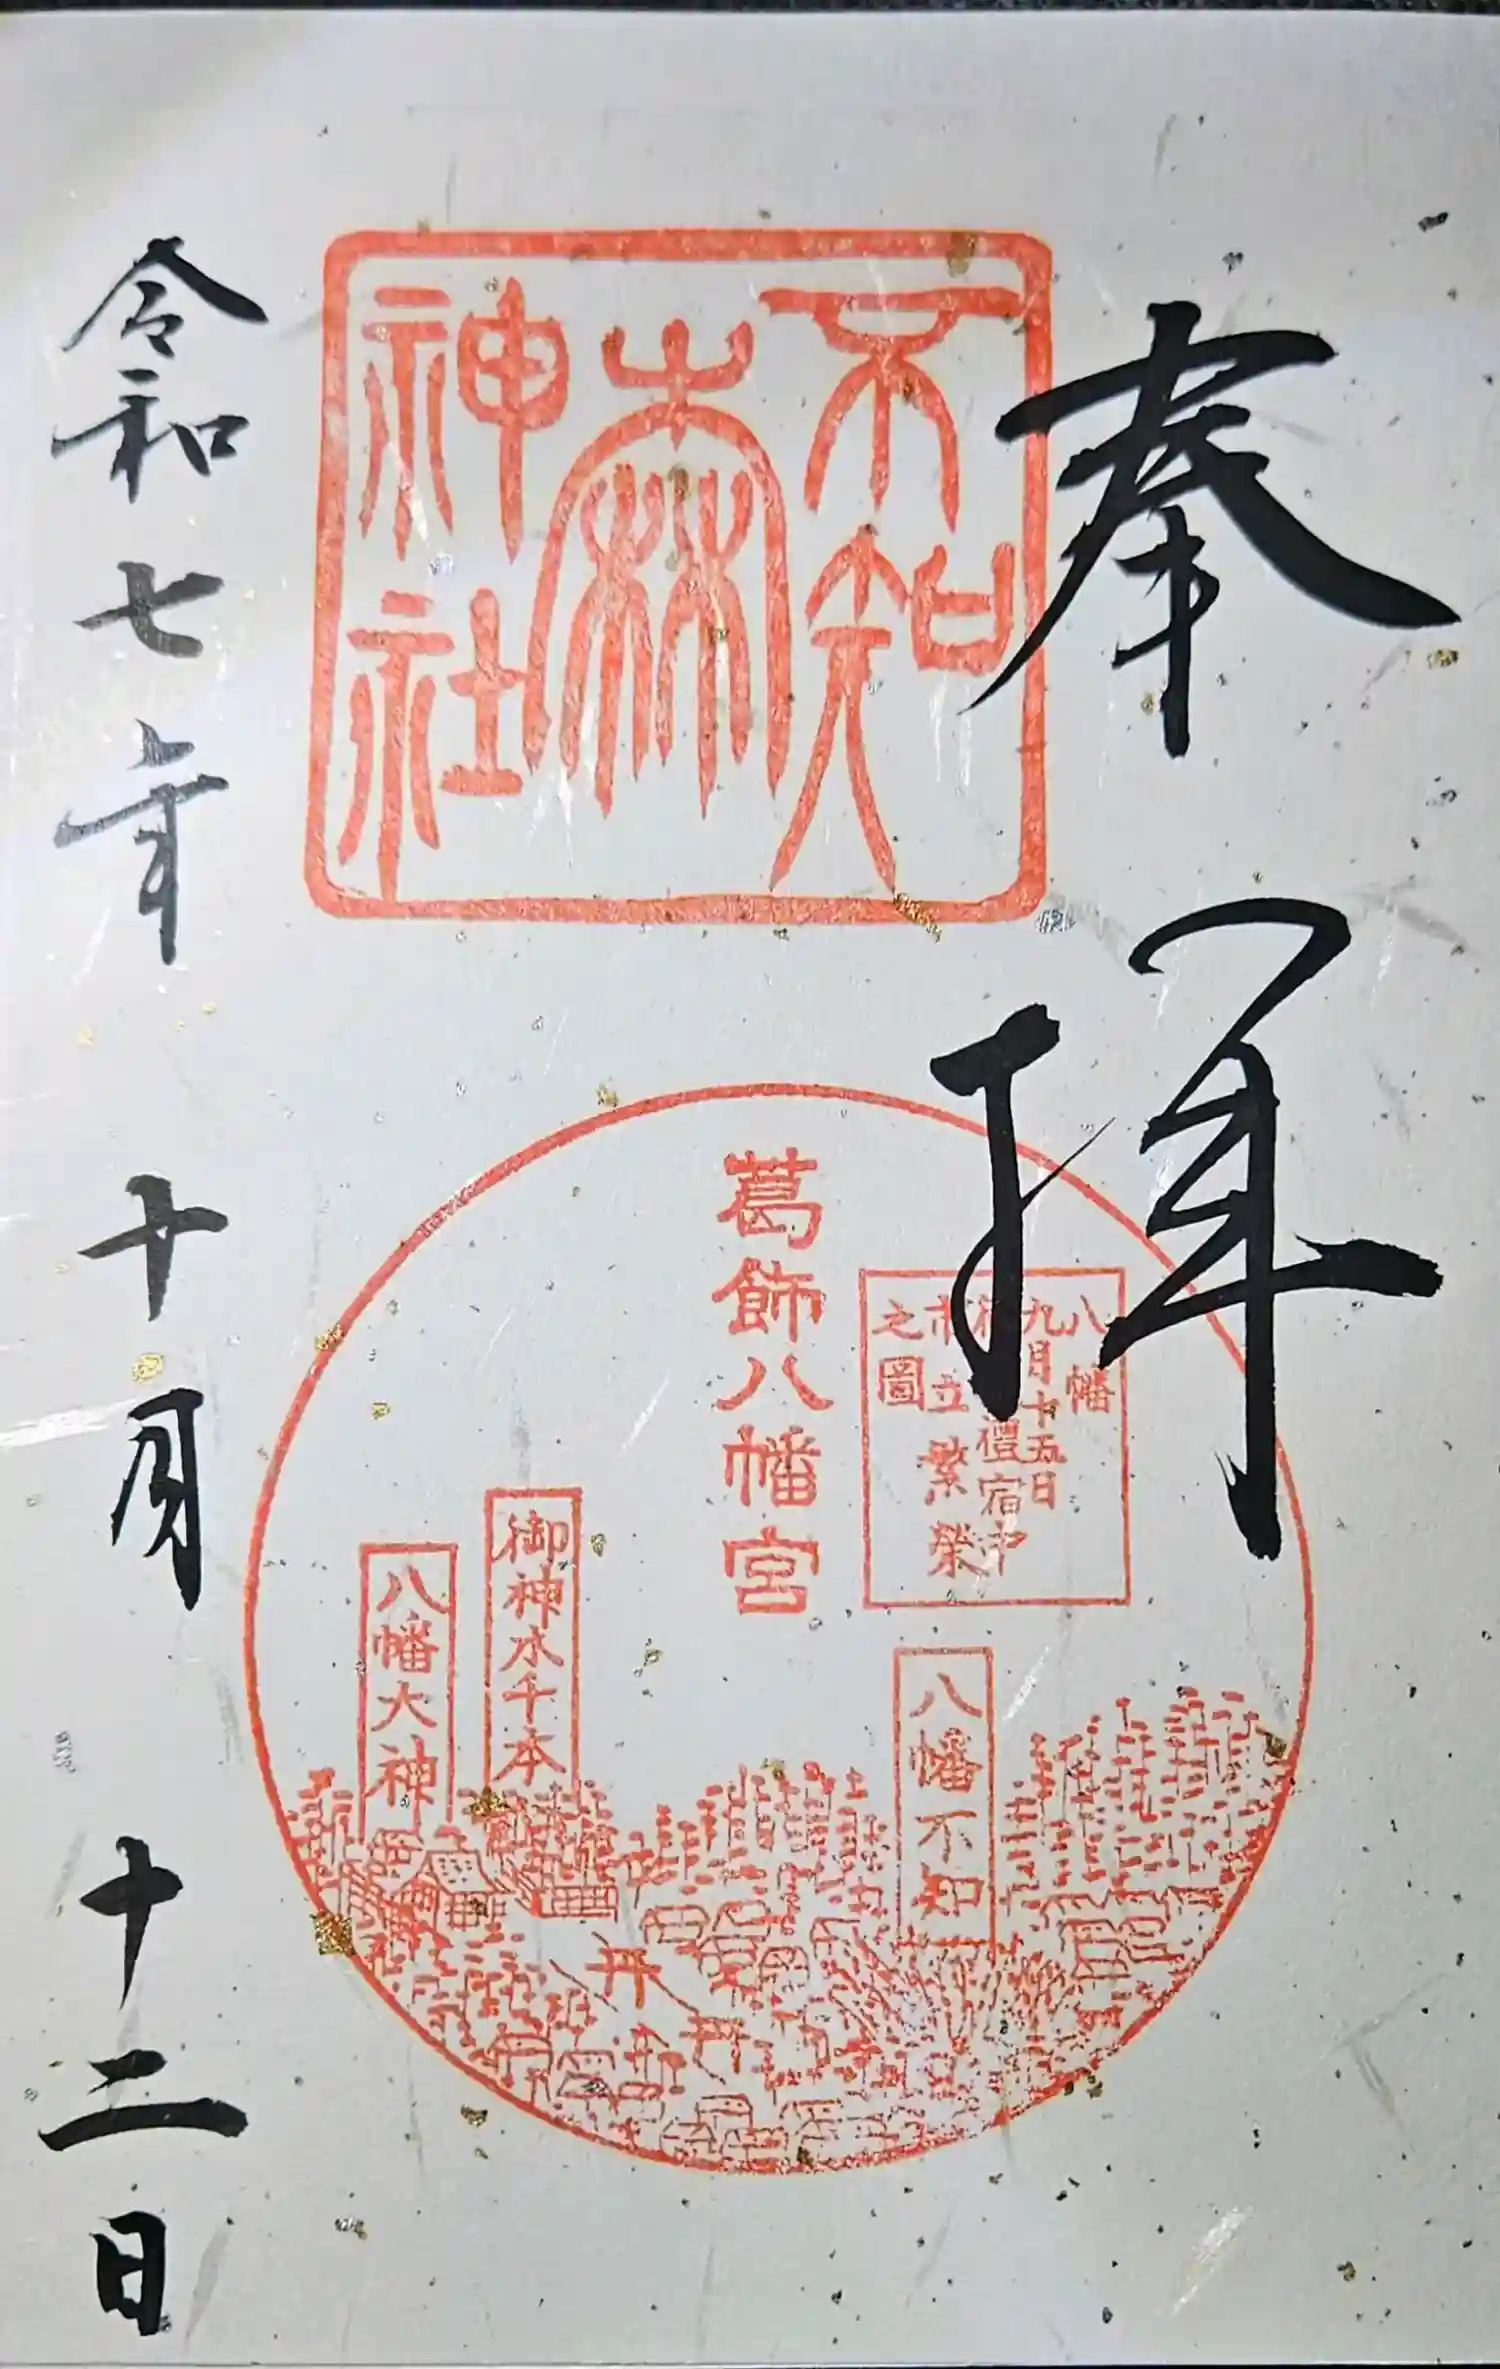 奉拝
不知
森
神社
葛飾八幡宮
八幡
九月十五日
禮宿中
市立繁榮
之圖
八幡不知
御神水千本
八幡大神
令和七年十月十二日